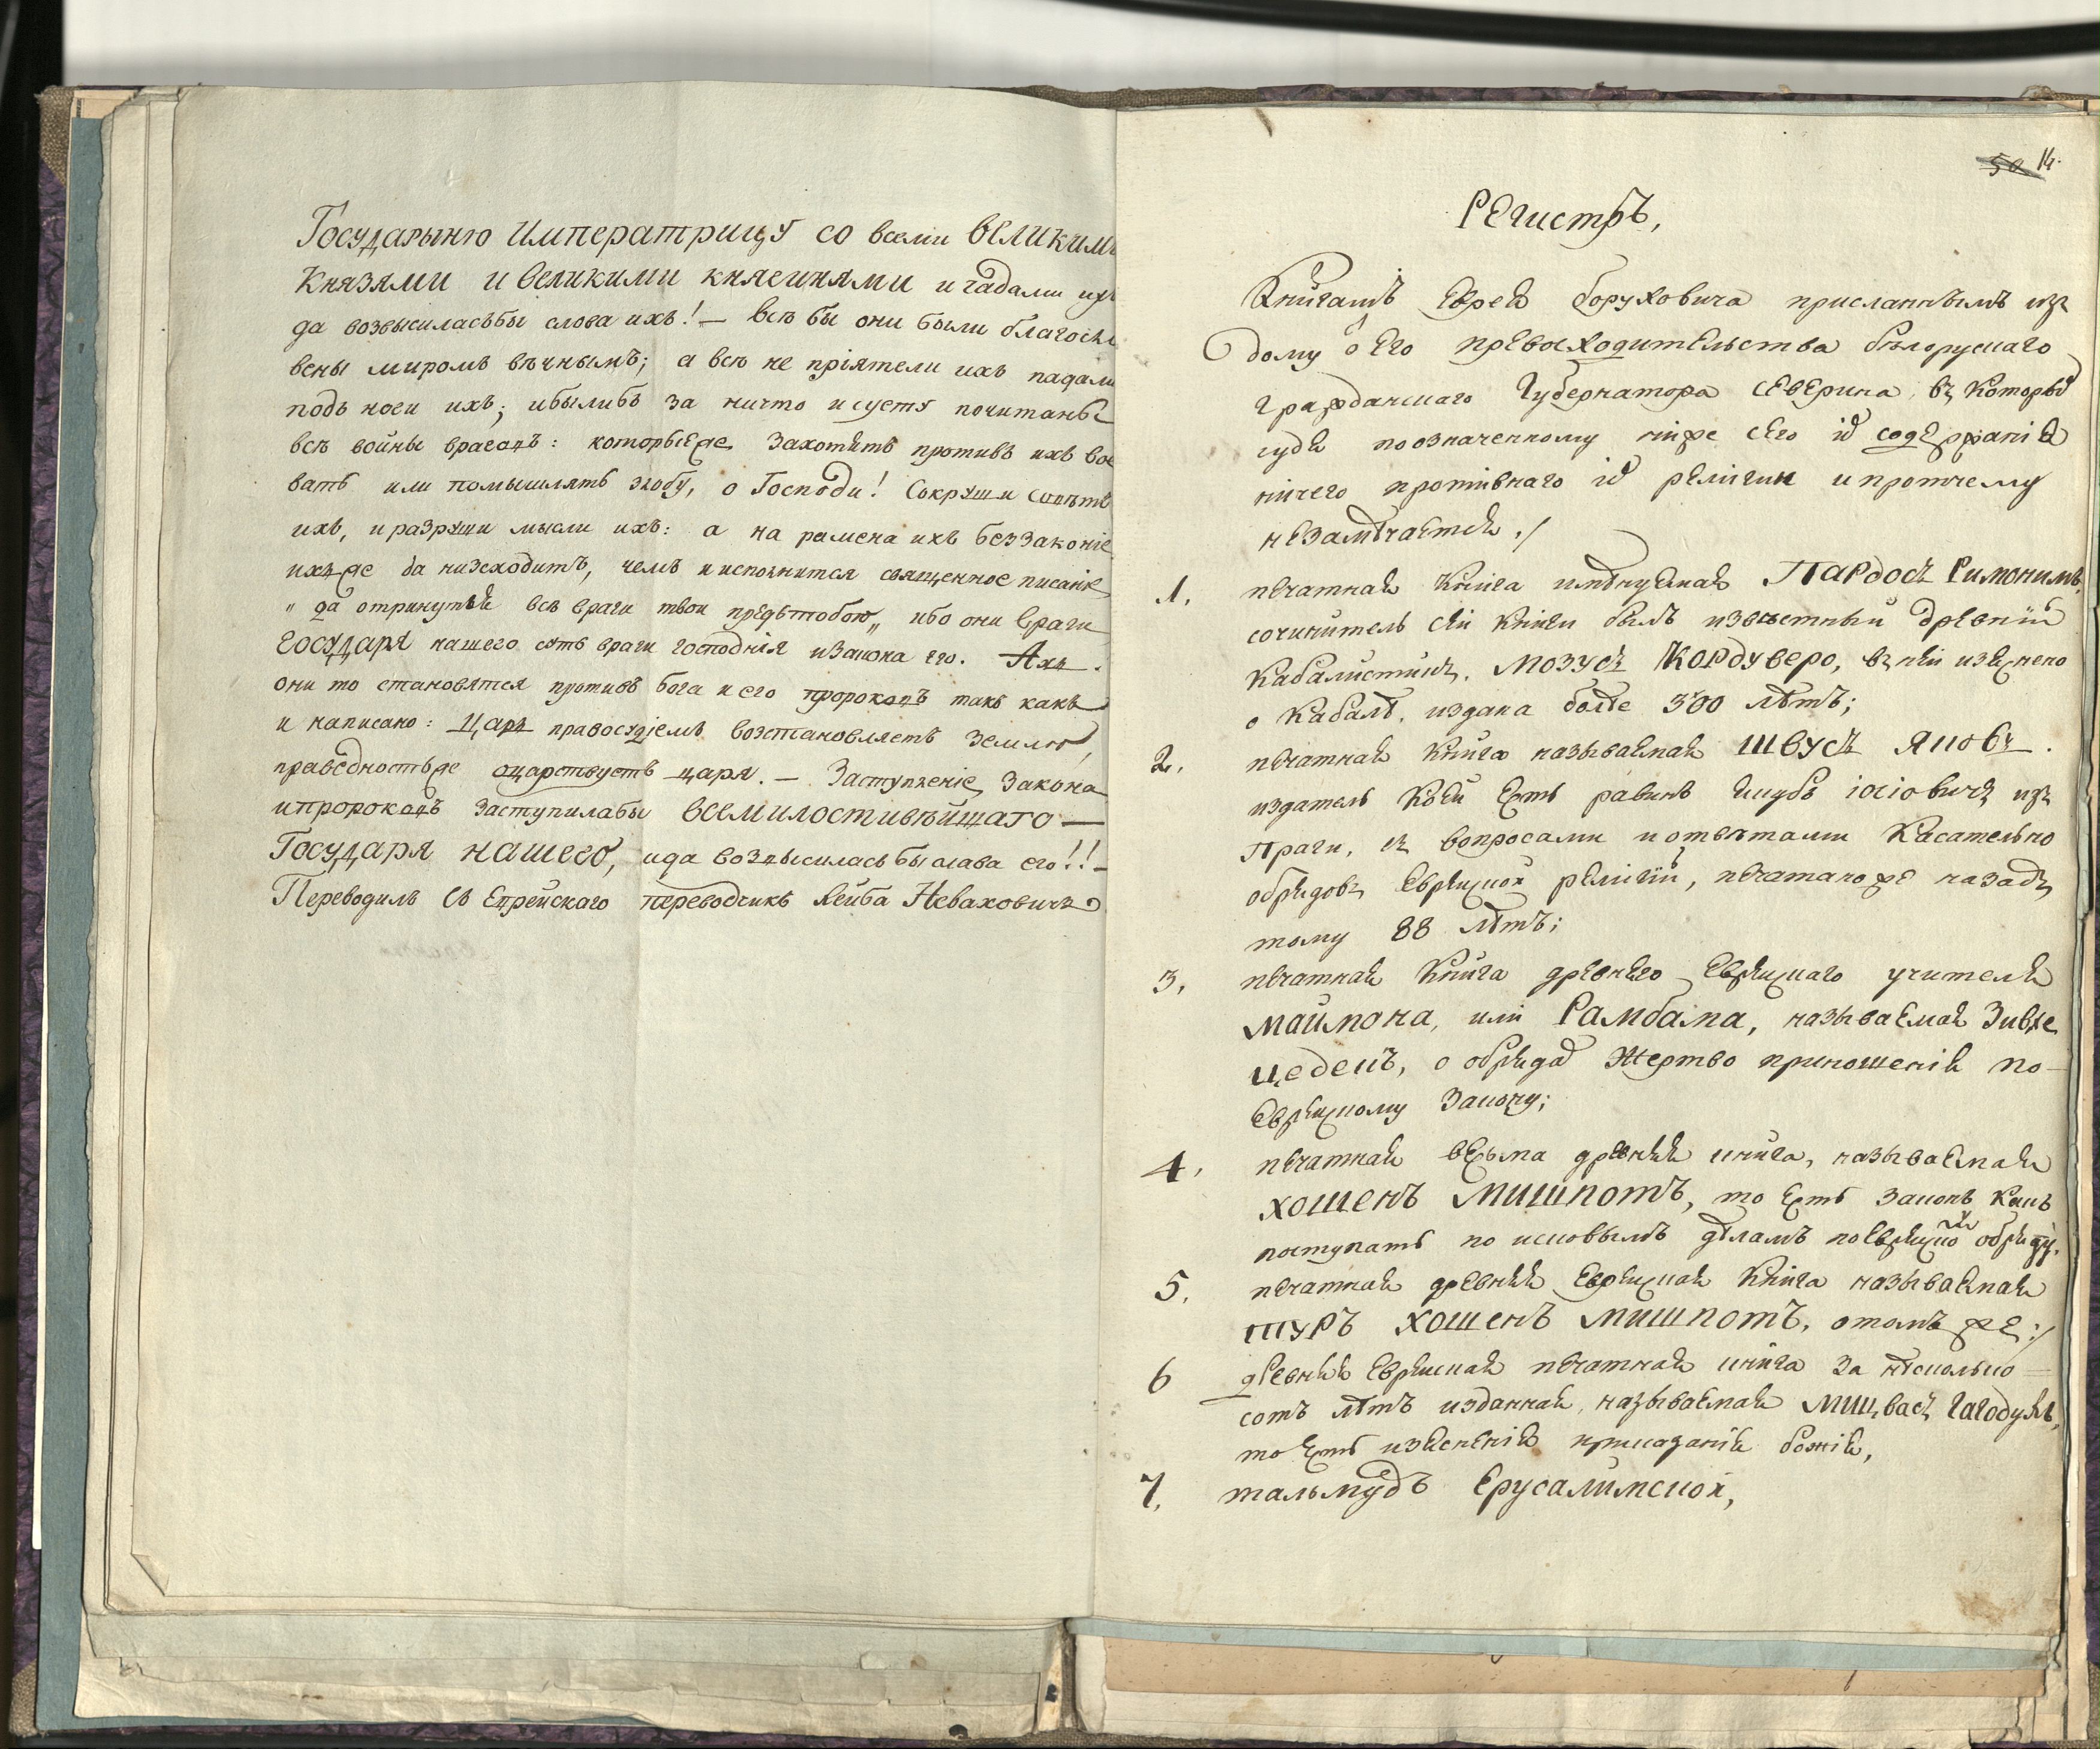 Государыню Императрицу со всеми великими
Князями и великими княгинями и чадами ихъ
да возвысиласьбы слова ихъ! — всѣ бы они были благосло
вены миромъ вѣчнымъ; а всѣ не пріятели ихъ падали
подъ ноги ихъ; ибылибъ за ничто и суету почитаны
всѣ войны враговъ: которыеже захотятъ противъ ихъ вое
вать или помышлять злобу, о Господи! Сокруши совѣтъ
ихъ, и разруши мысли ихъ: а на рамена ихъ беззаконіе
ихъже да низсходитъ, чемъ и исполнится священное писаніе
„ да отринутся всѣ враги твои предътобою„ ибо они враги
ГОСУДАРЯ нашего суть враги господнія изакона его. Ахъ.
они то становятся противъ бога и его пророковъ такъ какъ
и написано: Царь правосудіемъ возстановляетъ землю,
праведностьже царствуетъ царя. — Заступленіе закона
ипророковъ заступилабы всемилостивѣйшаго —
Государя нашего, ида возвысиласьбы слава его!! –
Переводилъ съ Еврейскаго переводчикъ Лейба Неваховичъ
50 14.
Регистръ,
Книгамъ Еврея боруховича присланнымъ изъ
дому Его превосходительства бѣлорускаго
гражданскаго Губернатора Северина, въ которы
судя поозначенному ниже сего ихъ содержанія
ничего противнаго ихъ религии ипротчему
незамѣчается ./
1. печатная книга имѣнуемая Пардосъ Римонимъ,
сочинитель сей книги былъ извѣстный древній
кабалистикъ, Мозусъ Кордуверо, въ ней изъяснено
о кабалѣ, издана болѣе 300 лѣтъ;
2. печатная книга называемая Швусъ Яковъ.
издатель коей есть равинъ якубъ іосіовичъ изъ
Праги, съ вопросами иотвѣтами касательно
обрядовъ Еврейской религіи, печатаноже назадъ
тому 88 лѣтъ;
3, печатная книга древняго Еврейскаго учителя
Маймона, или Рамбама, называемая Зивхе
цедекъ, о обрядахъ Жертво приношенія по-
Еврейскому закону;
4, печатная весьма древняя книга, называемая
хошенъ Мишпотъ, то есть законъ какъ
поступать по исковымъ дѣламъ поеврейскому обряду.
5, печатная древняя Еврейская книга называемая
туръ хошенъ мишпотъ, отомъ же ./
6 древняя Еврейская печатная книга за нѣсколько
сотъ лѣтъ изданная, называемая мицвасъ гагодумъ,
то есть изъясненія приказанія божія,
7, тальмудъ Ерусалимской,